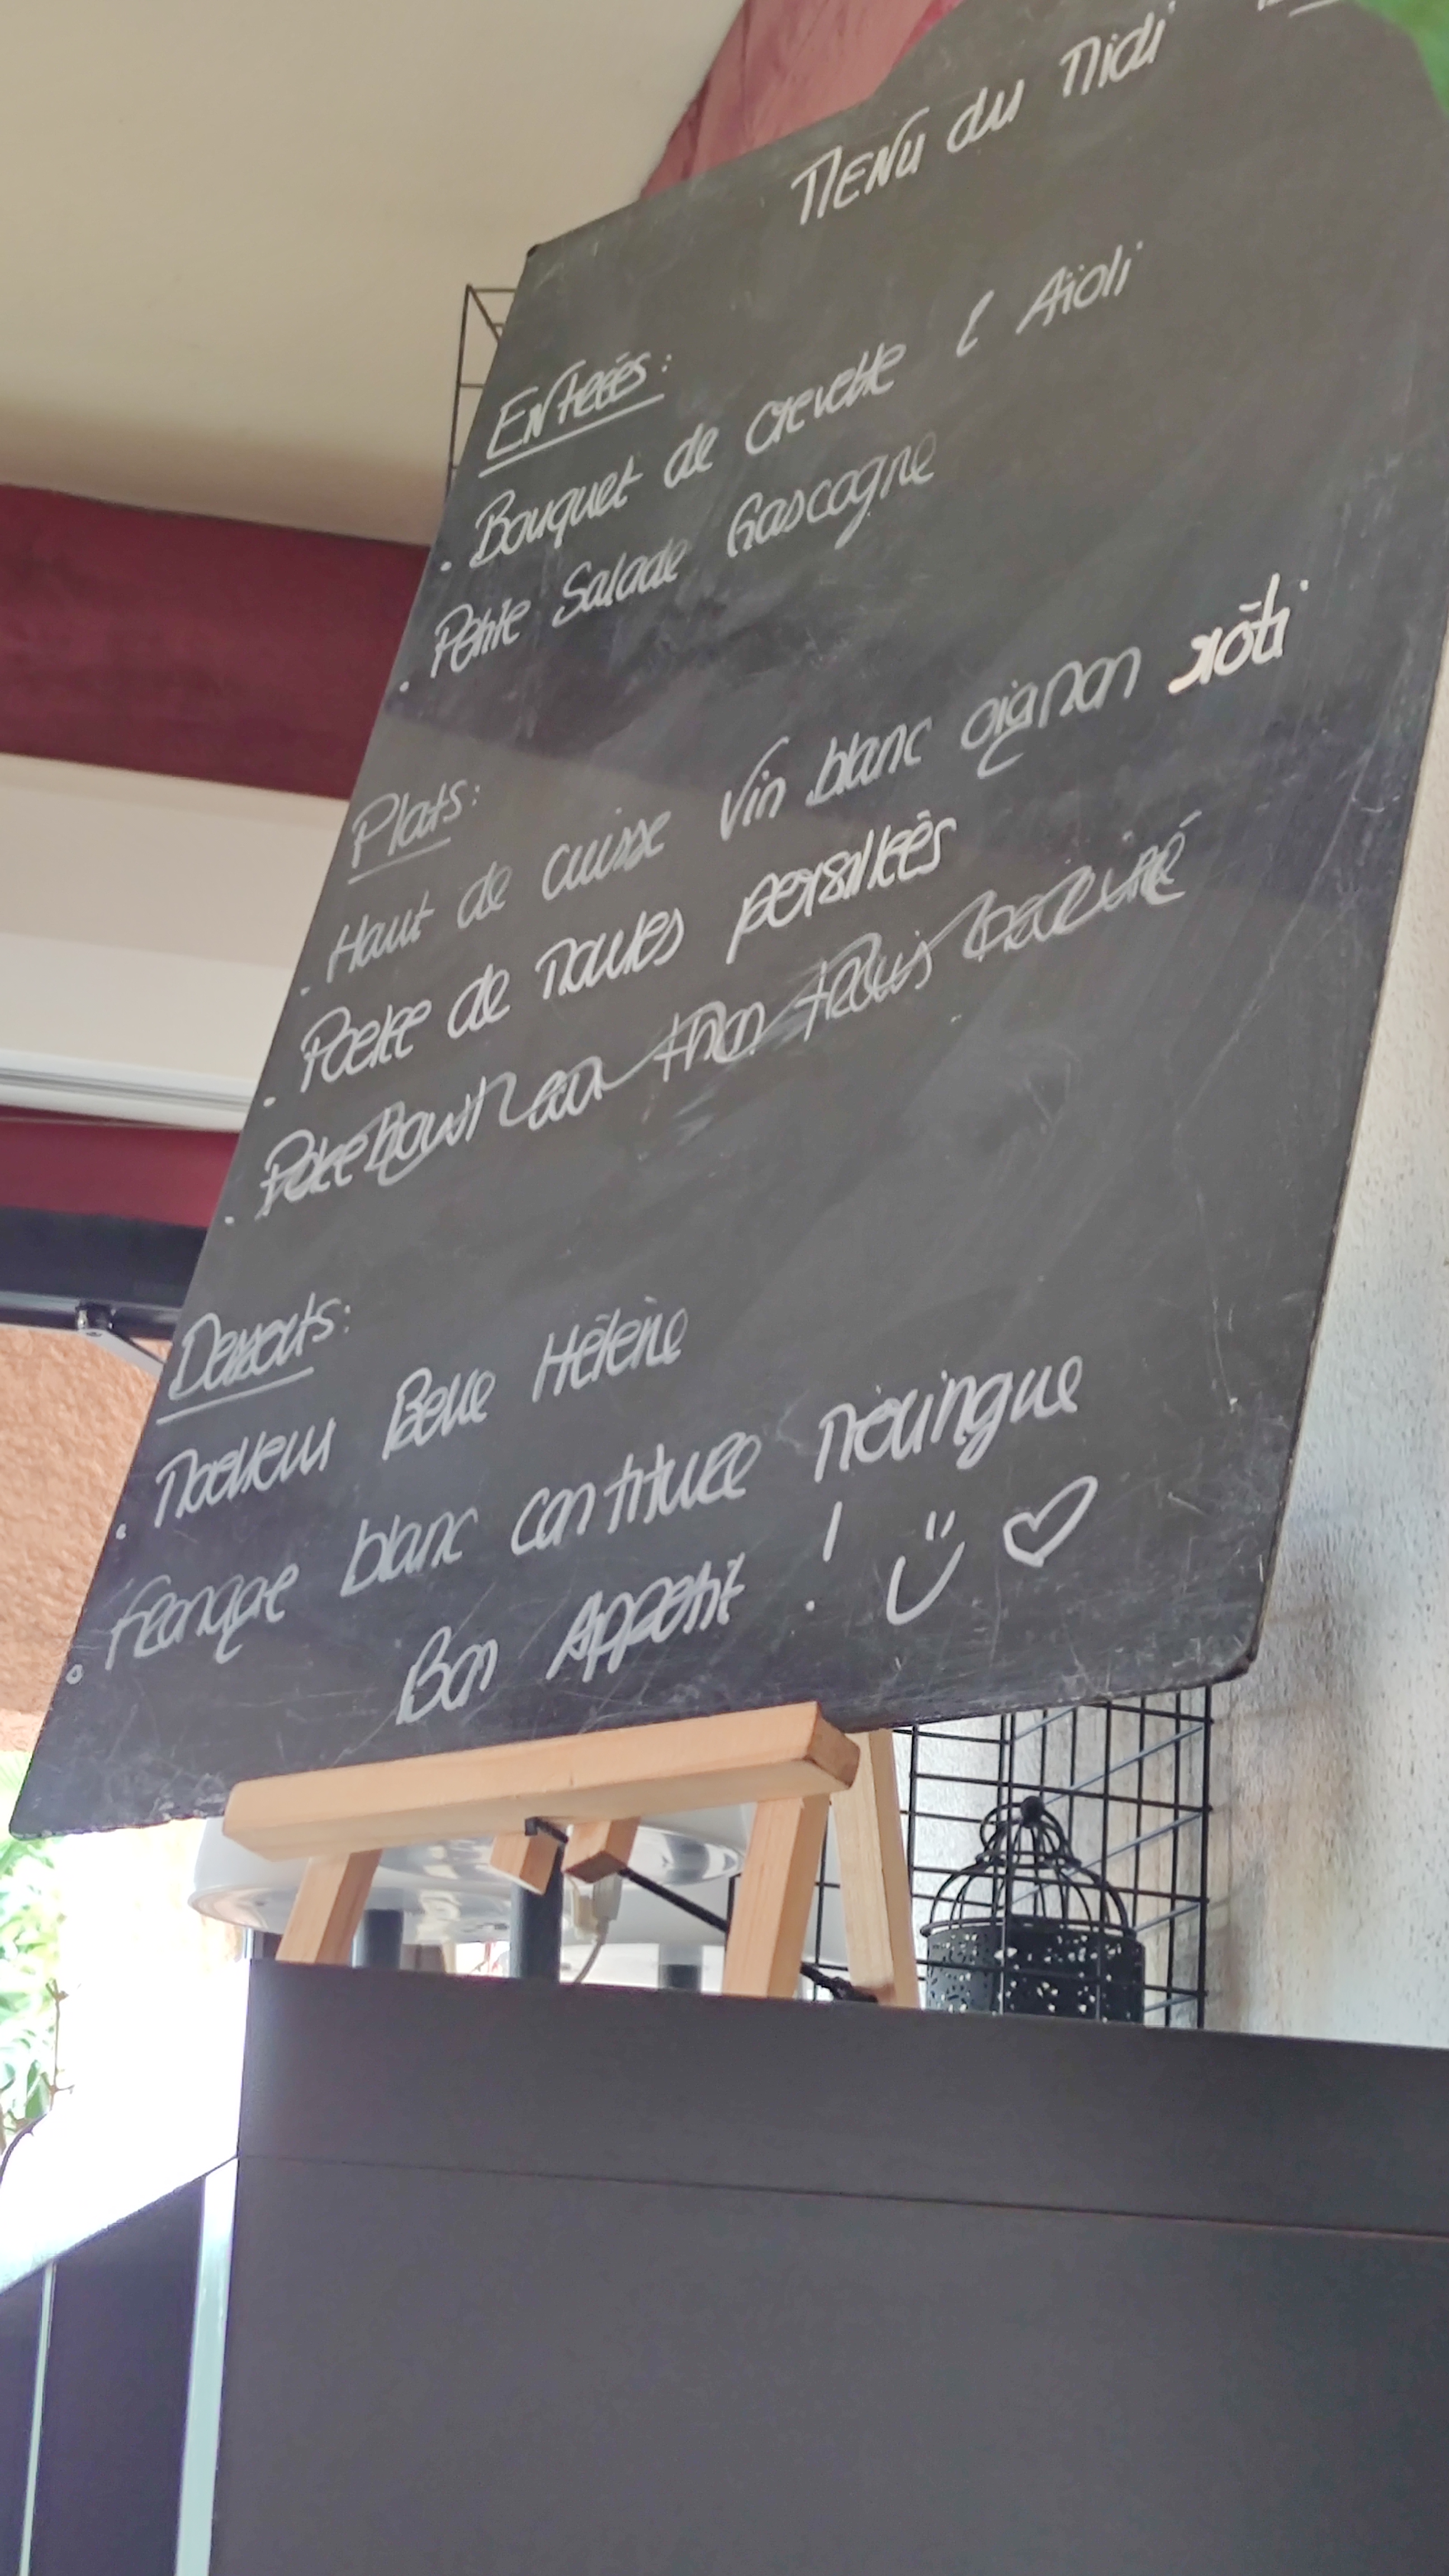 Menu du Midi
Entrées :
• Bouquet de crevette & Aïoli
• Petite Salade Gascogne
Plats :
• Haut de cuisse vin blanc oignon rôti
• Poelée de moules persillées
• PokeBowl au thon mariné
Desserts :
• Moelleux Belle Hélène
• Fromage blanc confiture meringue
Bon Appétit ! ♡